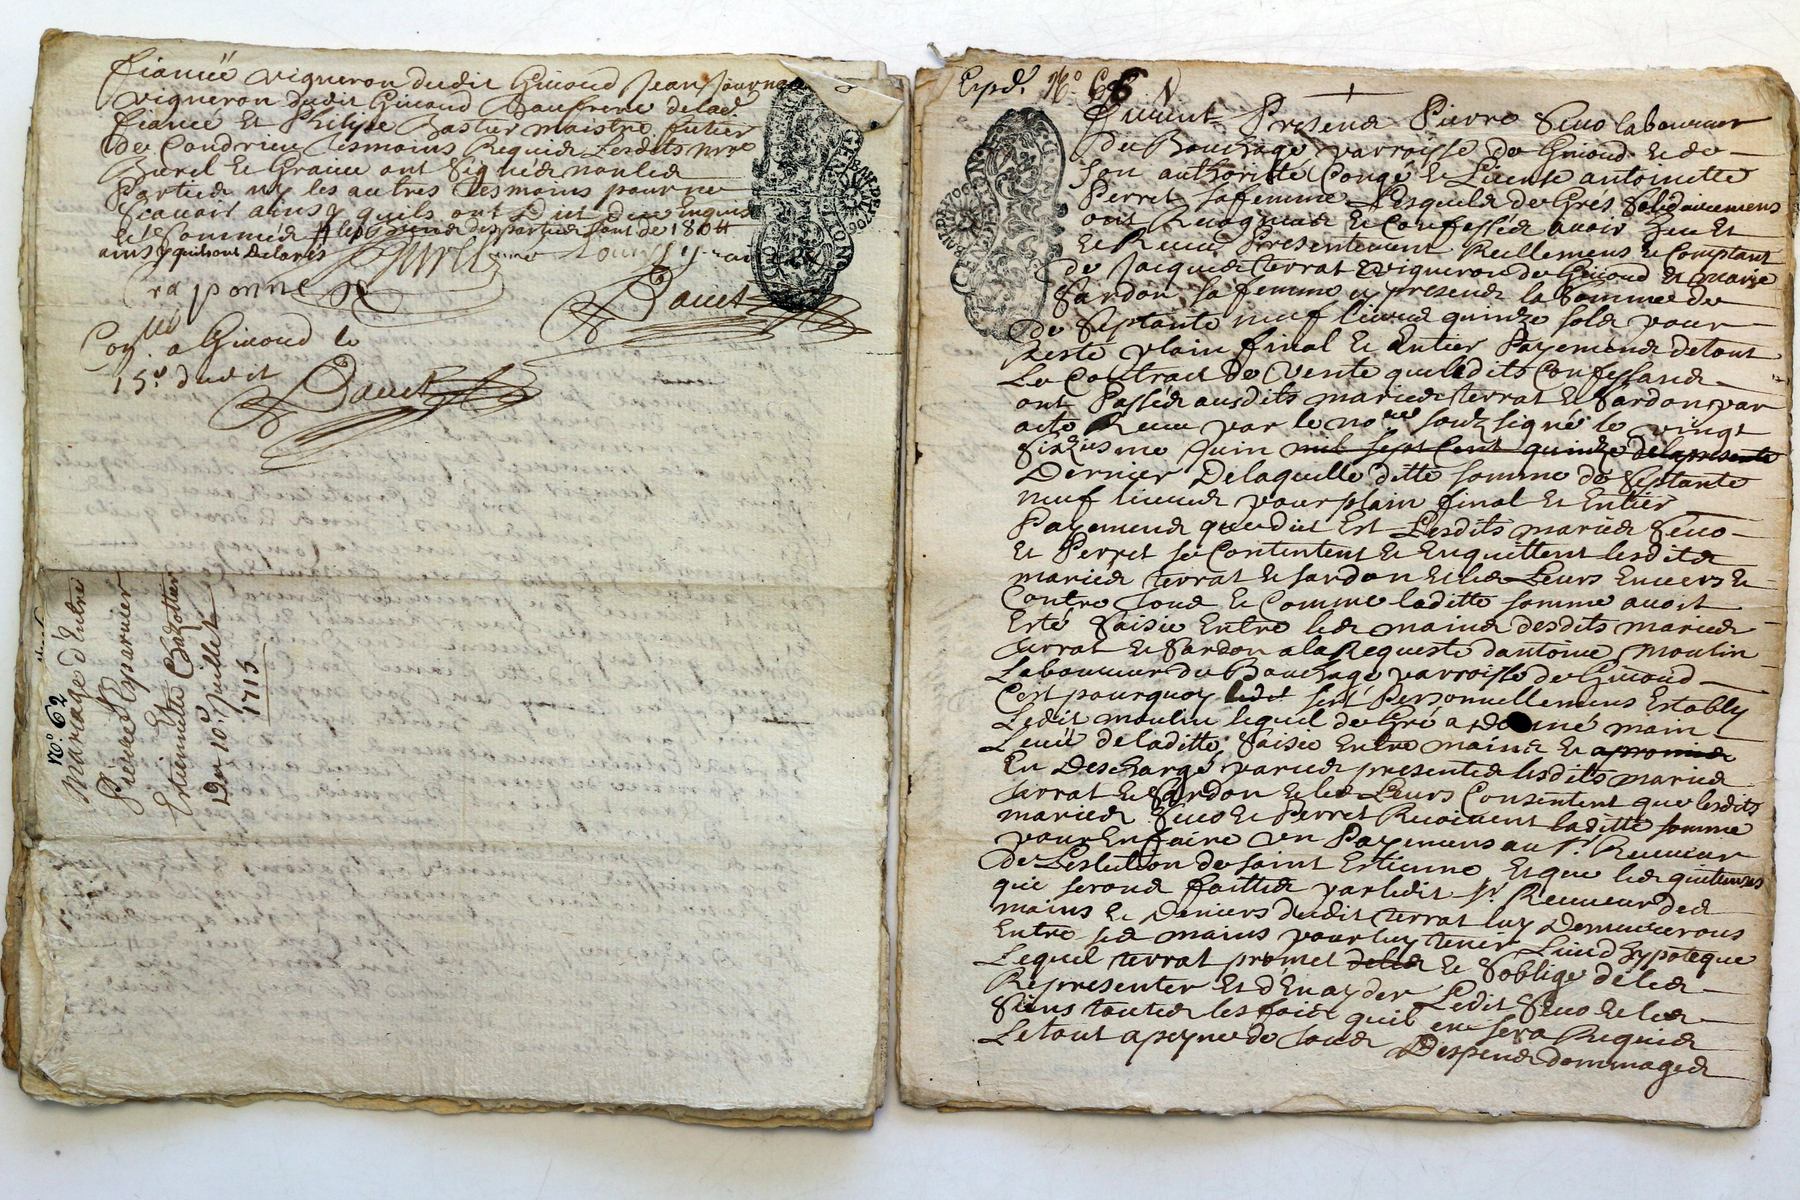 fiancée vigneron dudit Givord Jean Journe
vigneron dudit Givord beaufrere delad.
fiancé Et Philipe Bastier maistre futier
de Condrieu tesmoins Requis Lesdits
Burel Et Graive ont Signés non les
Parties ny les autres tesmoins pour ne
Scavoir ainsy quils ont Dict deue Enquis
Et Sommés les des parties sont de 180tt
ainsy quils ont Declarés
raponne
Bauet
Con. a Givord le
15e dudit
Bauet
no. 62
Mariage d'Entre
Pierre Eyparvier
Et
Estiennette Chazottier
Du 10e Juillet
1715
Expd. No. 68
furent Presens Pierre Seno laboureur
du Bouchage parroisse de Givord Et de
son authorité Congé Et Licence antoinette
Perret sa femme Lesquels de Gres Solidairemens
ont Recognus Et Confessés avoir Heu Et
Et Receu Presentement Reellemens Et Comptant
de Jacques terrat vigneron de Givord Et marie
Sardon sa femme y presens la Somme de
de Septante neuf livres quinze sols pour
Reste plain final Et Entier Payemens de tout
Le Contrat de Vente que lesdits Confessans
ont Passés ausdits maries terrat Et Sardon par
acte Receu par le nore. soubzsigné le vingt
Sixiesme Juin mil sept Cent quinze de la presente
Dernier De laquelle ditte somme de Septante
neuf livres pour plain final Et Entier
Payemens que dict Est Lesdits maries Seno
Et Perret se Contentent Et Enquittent lesdits
maries terrat Et Sardon Et les Leurs Envers Et
Contre tous Et Comme laditte somme avoit
Esté Saisie Entre les mains desdits maries
terrat Et Sardon a la Requeste dantoine Moulin
Laboureur du Bouchage parroisse de Givord
C'est pourquoy ledit sest Personnellemens Estably
Ledit moulin lequel de Gré a Donné main
Levée de laditte Saisie Entre mains Et a promis
En Descharge par ces presentes lesdits maries
terrat Et Sardon Et les Leurs Consentent que lesdits
maries Seno Et Perret Recoivent laditte somme
pour En faire Un Payemens au Sr. Receveur
de Leslection de saint Estienne Et que les quittances
qui serons faittes par ledit Sr. Receveur des
mains Et Deniers dudit terrat luy Demeurerons
Entre ses mains pour luy tenir Lieud hypoteque
Lequel terrat promet de les Et Soblige de les
Representer Et d'En ayder Ledit Seno Et les
Siens toutes les fois quil en sera Requis
Le tout a peyne de tous Despens dommages